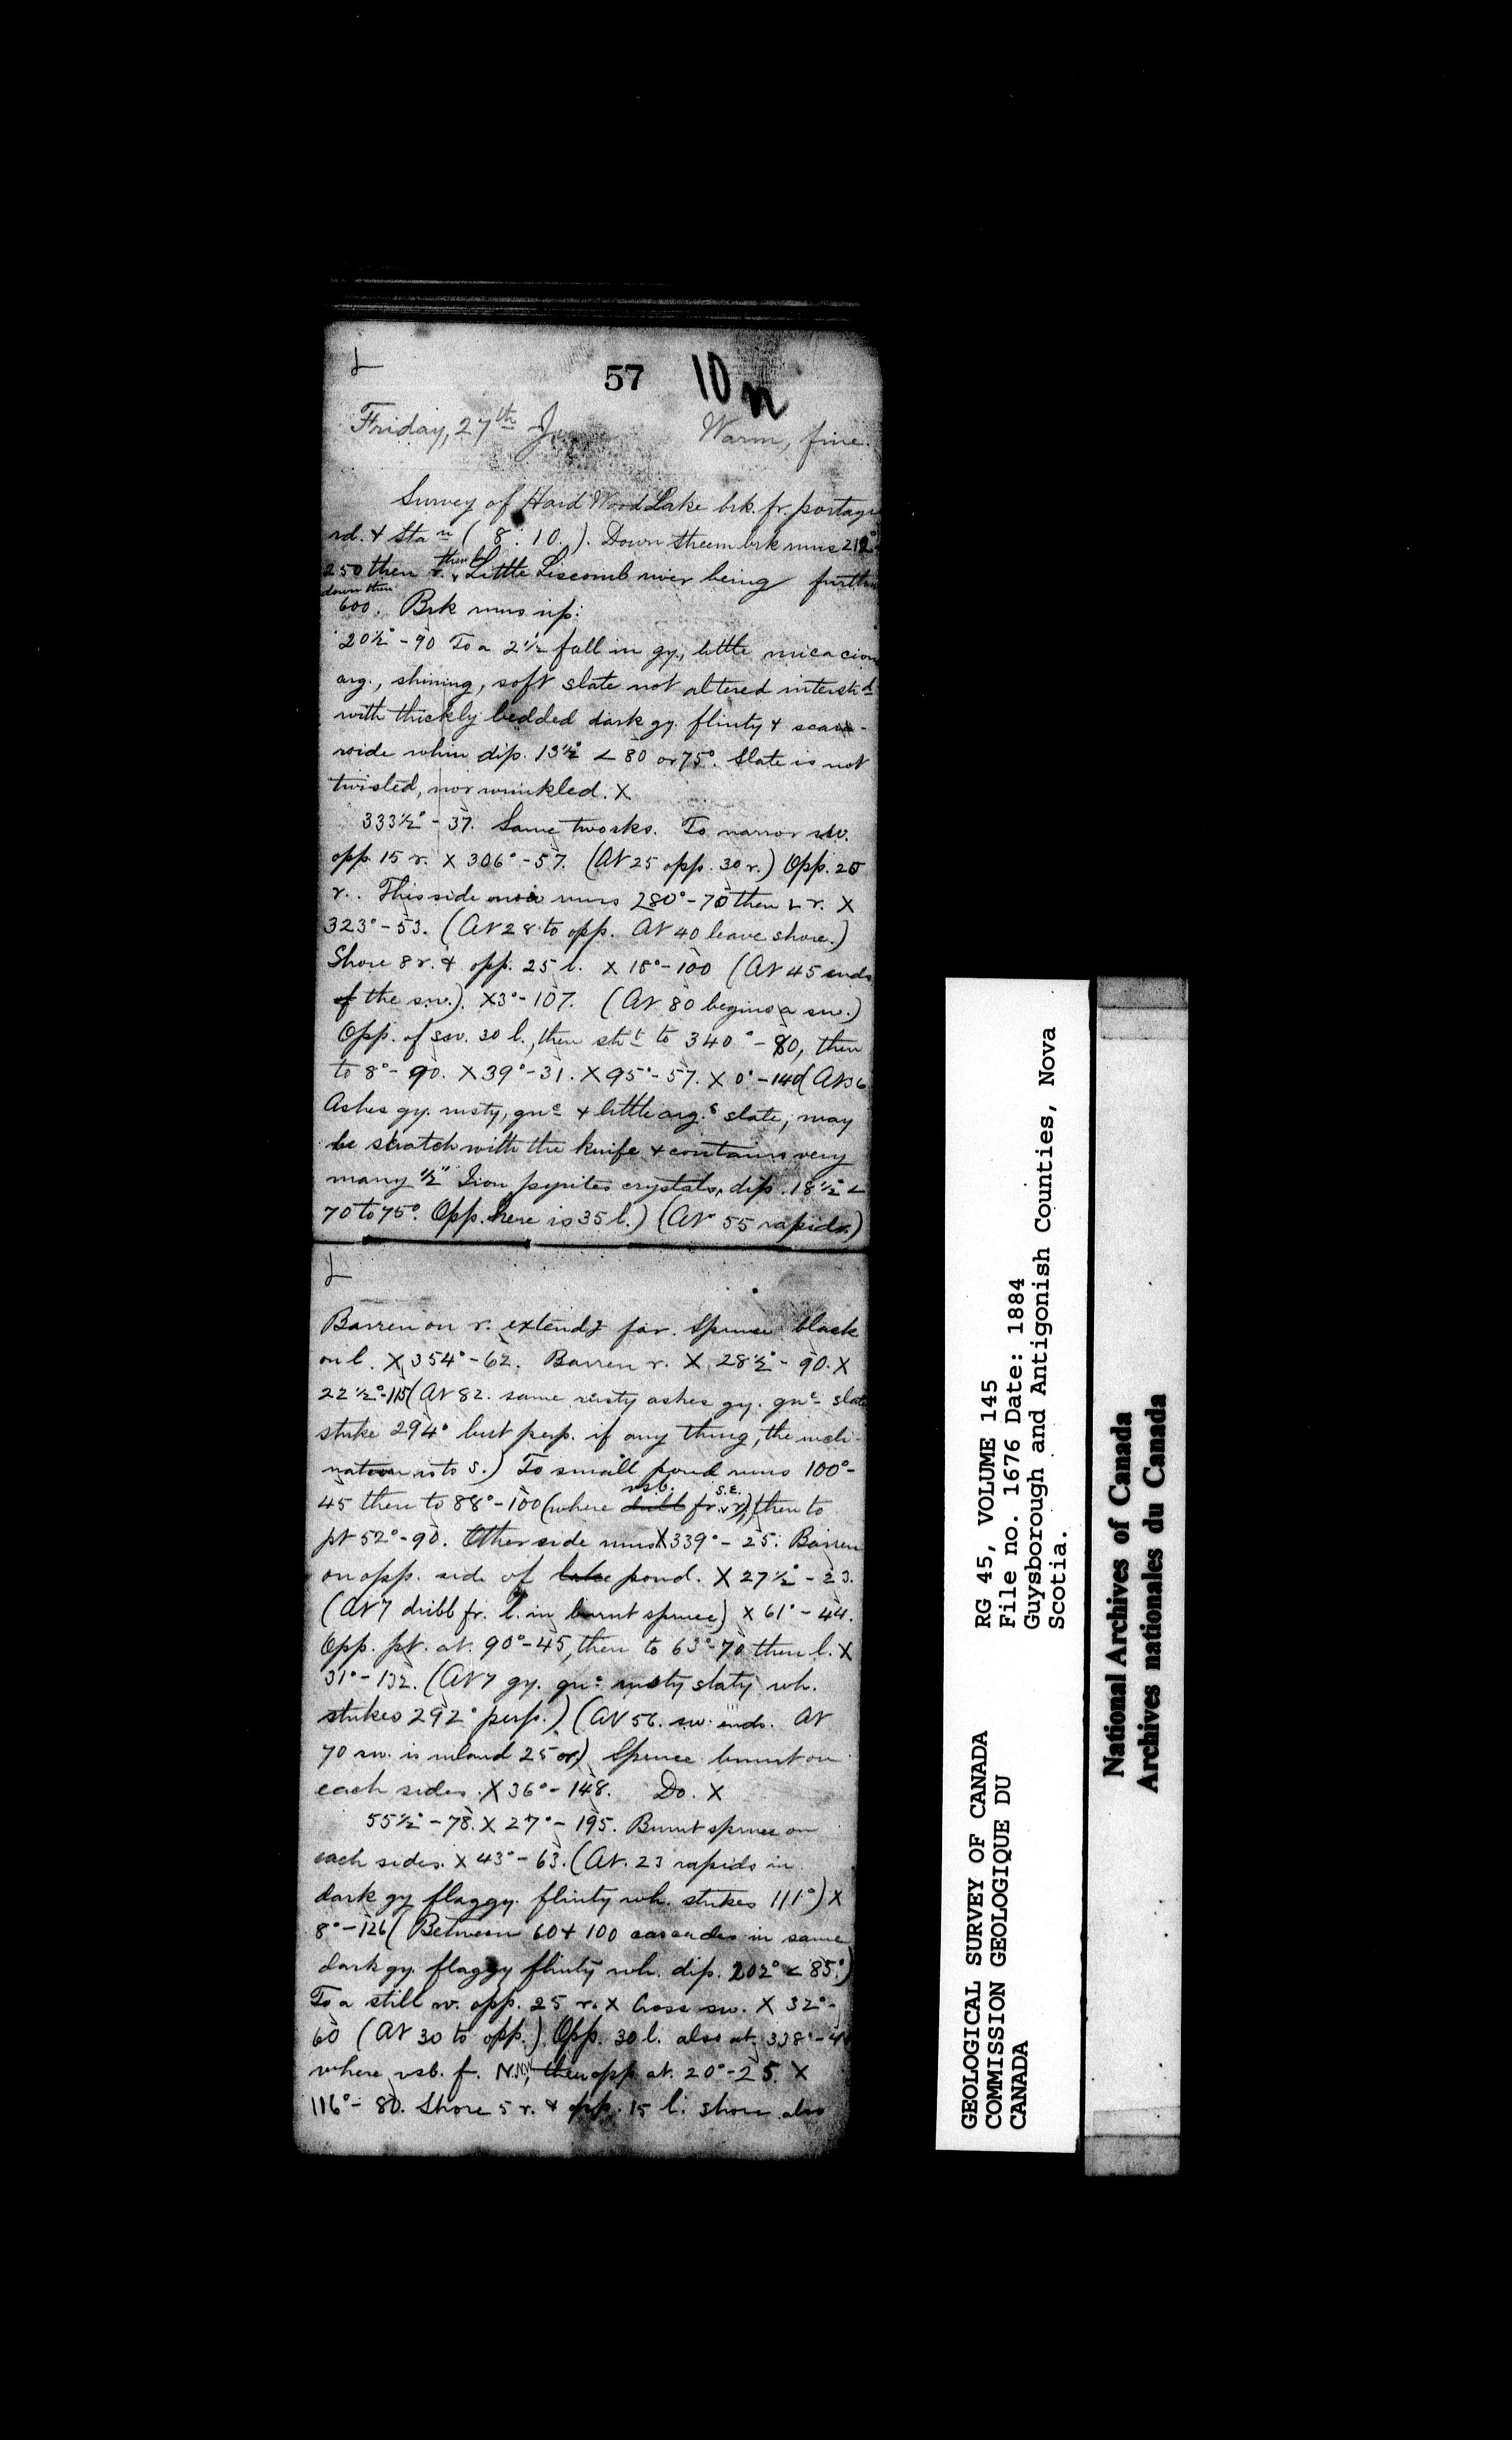 57 10 n
Friday, 27th Warm, fine.
Survey of Hard Wood Lake brk. fr. portage
rd. & Sta n (8:10.). Down stream brk runs 212°
250 then r. then l. Little Liscomb river being further
down then
600. Brk runs up:
20½° - 90 To a 2½ fall in gy., little micacious
arg., shining, soft slate not altered interst d
with thickly bedded dark gy. flinty &
whin dip. 13½° < 80 or 75°. Slate is not
twisted, nor wrinkled. X
333½° - 37. Same two rks. To narrow sw.
opp. 15 r. X 306° - 57. (At 25 opp. 30 r.) Opp. 25
r. This side runs 280° - 70 then r. X
323° - 53. (At 28 to opp. At 40 leave shore.)
Shore 8 r. & opp. 25 l. X 18° - 100 (At 45 ends
of the sw.). X 3° - 107. (At 80 begins a sw.)
Opp. of sw. 30 l., then sht to 340° - 80, then
to 8° - 90. X 39° - 31. X 95° - 57. X 0° - 140 (At 36
Ashes gy. rusty, gne & little arg.s slate, may
be skratch with the knife & contains very
many ½" Iron pyrites crystals, dip. 18½° <
70 to 75°. Opp. here is 35 l.) (At 55 rapids.)
Barren on r. extends far. Spruce black
on l. X 354° - 62. Barren r. X 28½° - 90. X
22½° - 115 (At 82. same rusty ashes gy. gne slate
strike 294° but perp. if any thing, the incli-
nation is to S.) To small pond runs 100° -
45 then to 88° - 100 (where dribb vsb. fr. S.E. r.) then to
pt 52° - 90. Other side runs X 339° - 25. Barren
on opp. side of lake pond. X 27½° - 23.
(At 7 dribb fr. l. in burnt spruce) X 61° - 44.
Opp. pt. at. 90° - 45, then to 63° - 70 then l. X
31° - 132. (At 7 gy. gne rusty slaty wh.
strikes 292° perp.) (At 56. sw. ends. At
70 sw. is inland 25 r.) Spruce burnt on
each sides. X 36° - 148. Do. X
55½° - 78. X 27° - 195. Burnt spruce on
each sides. X 43° - 63. (At. 23 rapids in
dark gy flaggy. flinty wh. strikes 111°) X
8° - 126 (Between 60 & 100 cascades in same
dark gy. flaggy flinty wh. dip. 202° < 85°.)
To a still w. opp. 25 r. X Cross sw. X 32° -
60 (At 30 to opp.) Opp. 30 l. also at 338° - 40
where vsb. f. N.NW, then opp at. 20° - 25. X
116° - 80. Shore 5 r. & opp. 15 l. shore also
GEOLOGICAL SURVEY OF CANADA
COMMISSION GEOLOGIQUE DU
CANADA
RG 45, VOLUME 145
File no. 1676 Date: 1884
Guysborough and Antigonish Counties, Nova
Scotia.
National Archives of Canada
Archives nationales du Canada